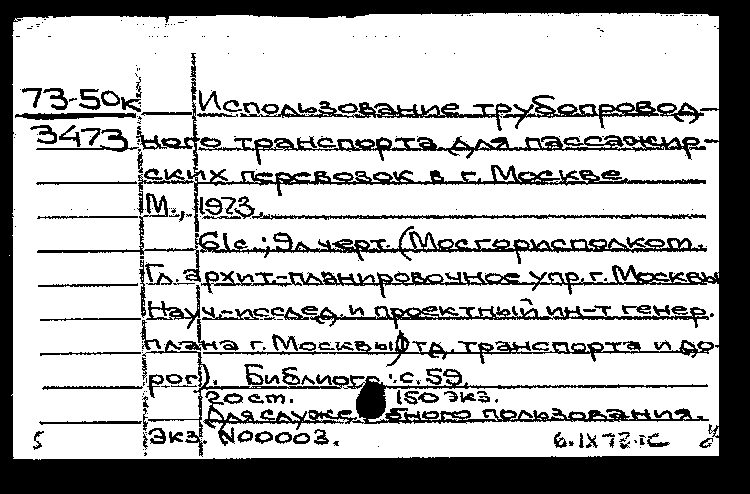 73-50к Использование трубопровод-
3473 ного транспорта для пассажир-
ских перевозок в г. Москве
М., 1973.
61с.; 9л черт. (Мосгорисполком.
Гл. архит.-планировочное упр. г. Москвы
Науч.-исслед. и проектный ин-т генер.
плана г. Москвы) Отд. транспорта и до-
рог). Библиогр.: с. 59.
20 см. 150 экз.
Для служебного пользования.
5 экз. N00003. 6.IX 73